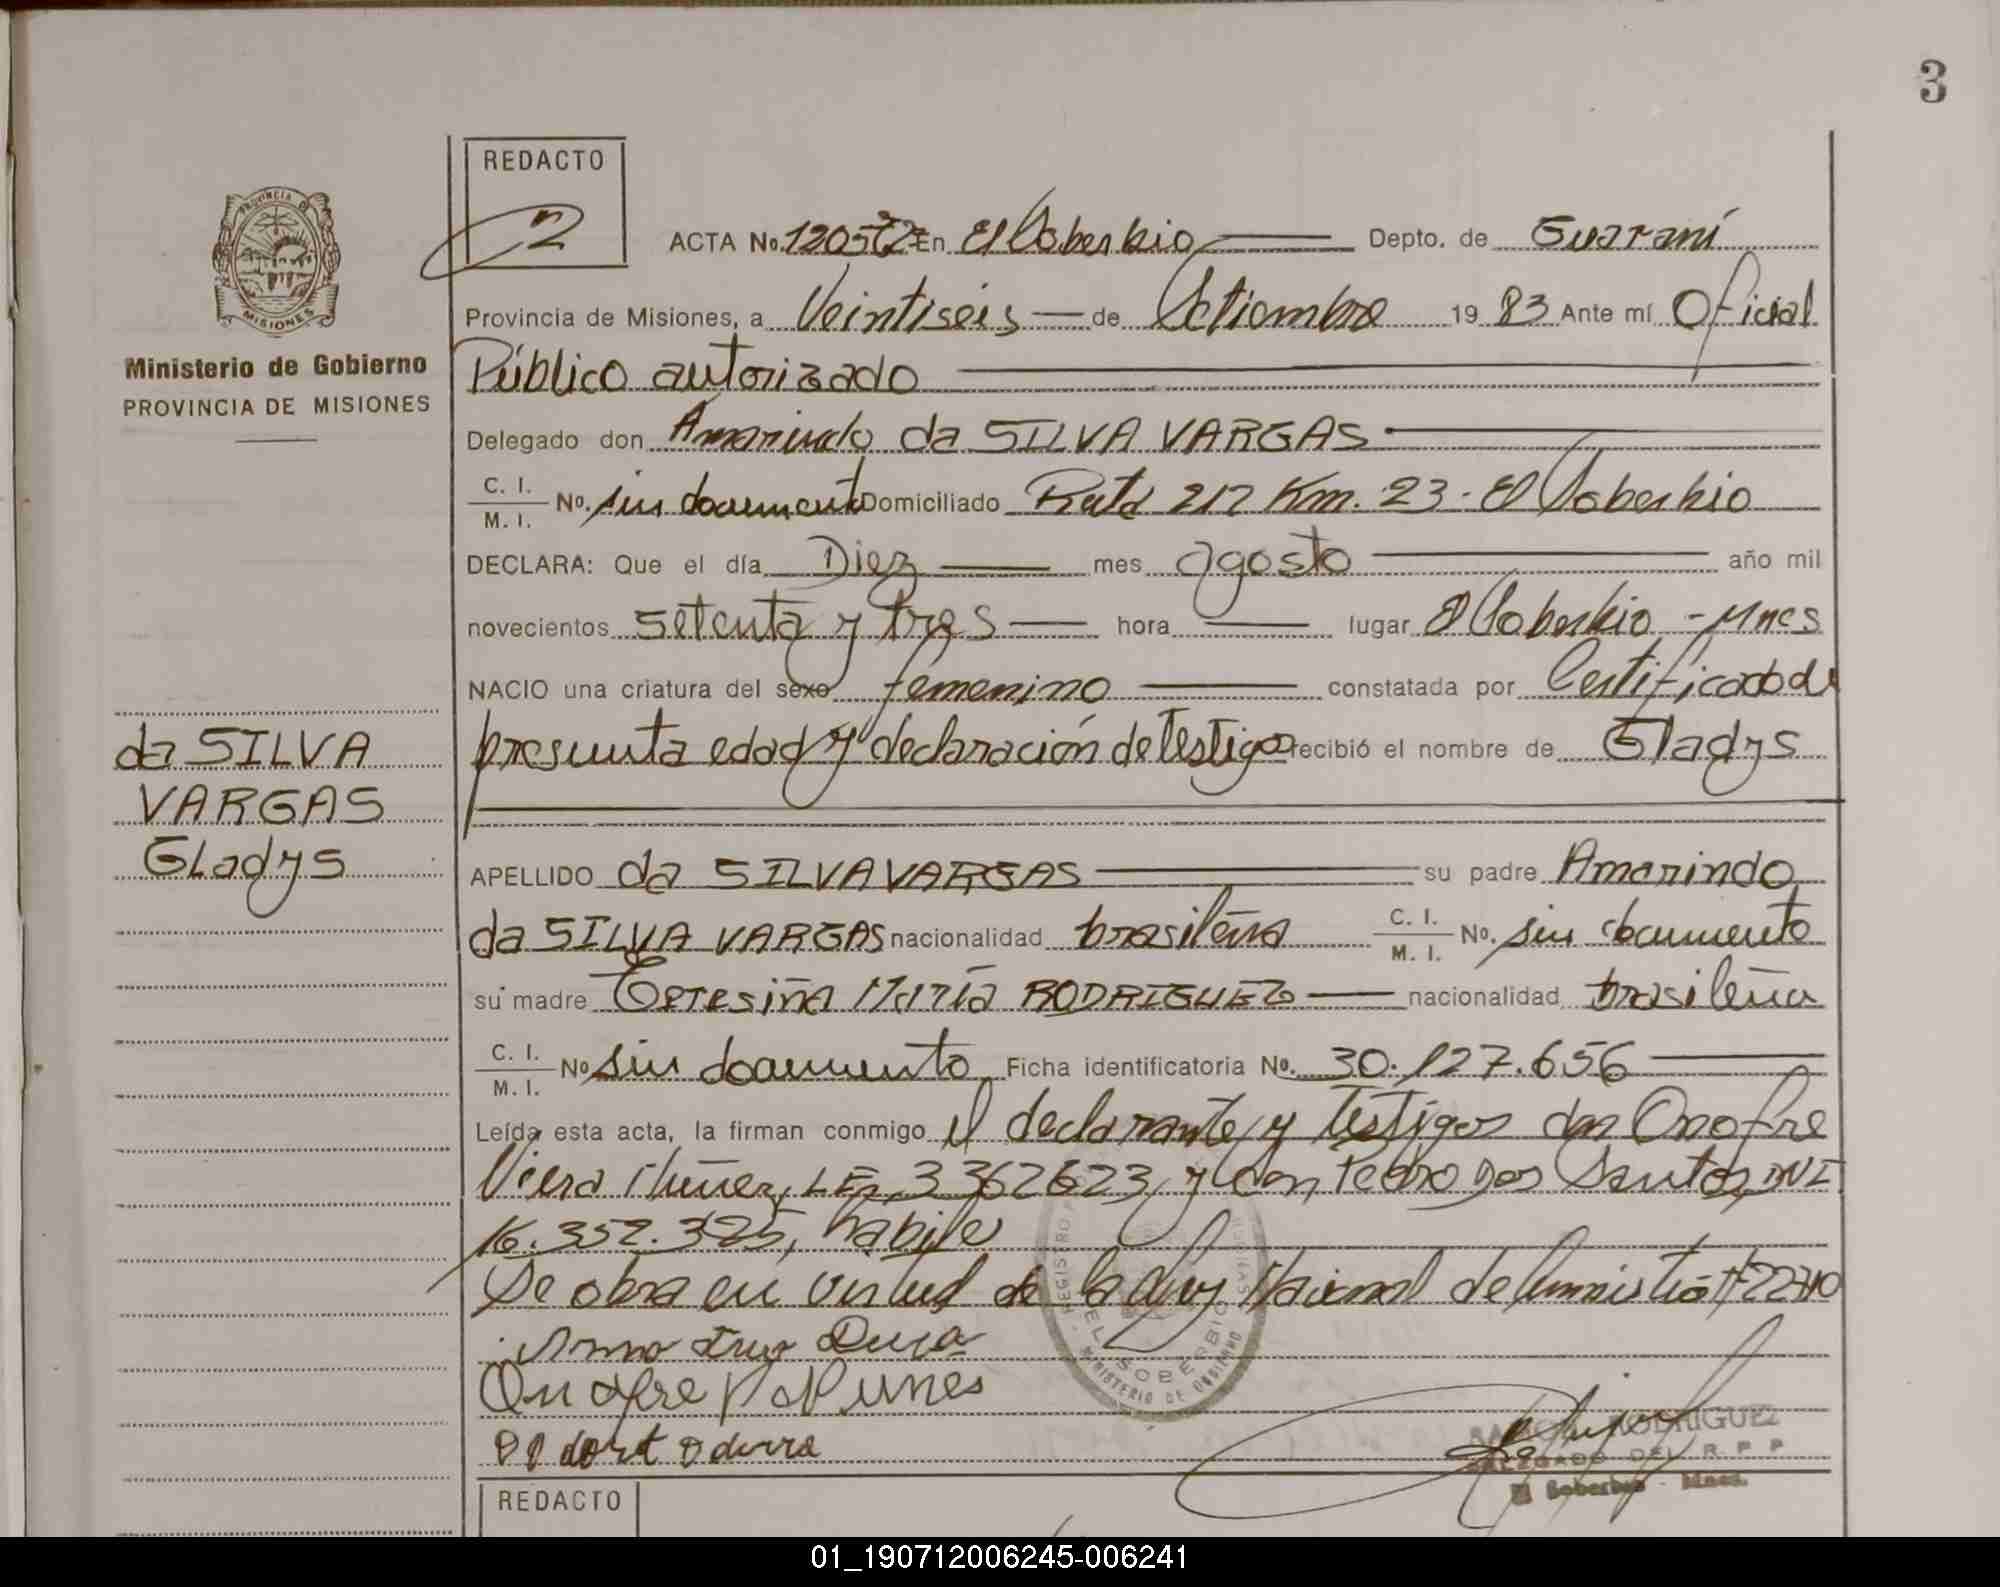 3
REDACTO
2
PROVINCIA DE
MISIONES
Ministerio de Gobierno
PROVINCIA DE MISIONES
ACTA No. En El Soberbio Depto. de Guaraní
Provincia de Misiones, a Veintiséis de Setiembre 19 83 Ante mí Oficial
Público autorizado
Delegado don Amarindo da SILVA VARGAS
C. I. M. I. No. sin documento Domiciliado Ruta 212 Km. 23 - El Soberbio
DECLARA: Que el día Diez mes agosto año mil
novecientos setenta y tres hora lugar El Soberbio - Mnes
NACIO una criatura del sexo femenino constatada por Certificado de
presunta edad y declaración de testigos recibió el nombre de Gladys
da SILVA
VARGAS
Gladys
APELLIDO da SILVA VARGAS su padre Amarindo
da SILVA VARGAS nacionalidad brasileña C. I. M. I. No. sin documento
su madre María RODRIGUEZ nacionalidad brasileña
C. I. M. I. No sin documento Ficha identificatoria No. 30.127.656
Leída esta acta, la firman conmigo el declarante y testigos don Onofre
Viera LE. 3362623, y don Pedro Dos Santos, DNI.
16.352.325, habiles
Se obra en virtud de la Ley Nacional de Amnistía Nº 22710
Onofre V Nunes
REGISTRO
EL SOBERBIO
MINISTERIO DE GOBIERNO
RODRIGUEZ
DELEGADO DEL R. P. P.
El Soberbio - Mnes.
REDACTO
01_190712006245-006241